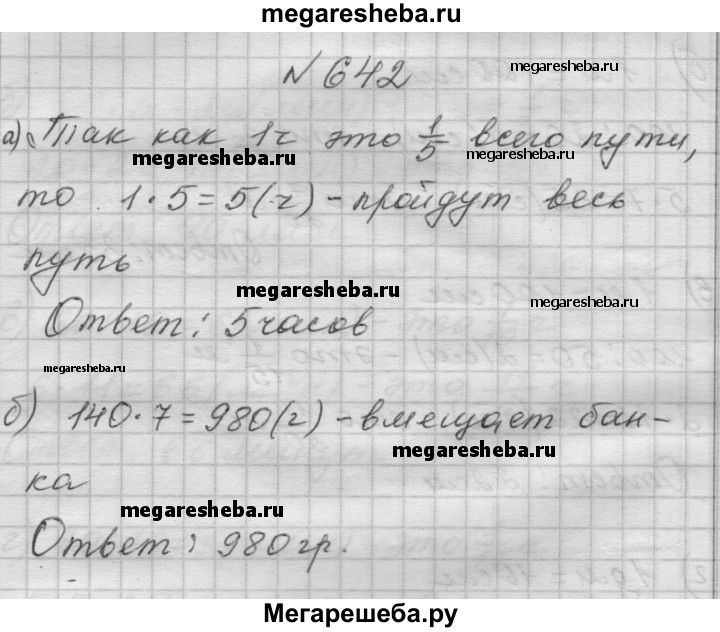 megaresheba.ru
№642
megaresheba.ru
а) Так как 1ч это 1/5 всего пути,
megaresheba.ru
megaresheba.ru
то 1·5=5(ч) - пройдут весь
путь
megaresheba.ru
megaresheba.ru
Ответ: 5 часов
megaresheba.ru
б) 140·7=980(г) - вмещает бан-
megaresheba.ru
ка
megaresheba.ru
Ответ: 980 гр.
Мегарешеба.ру